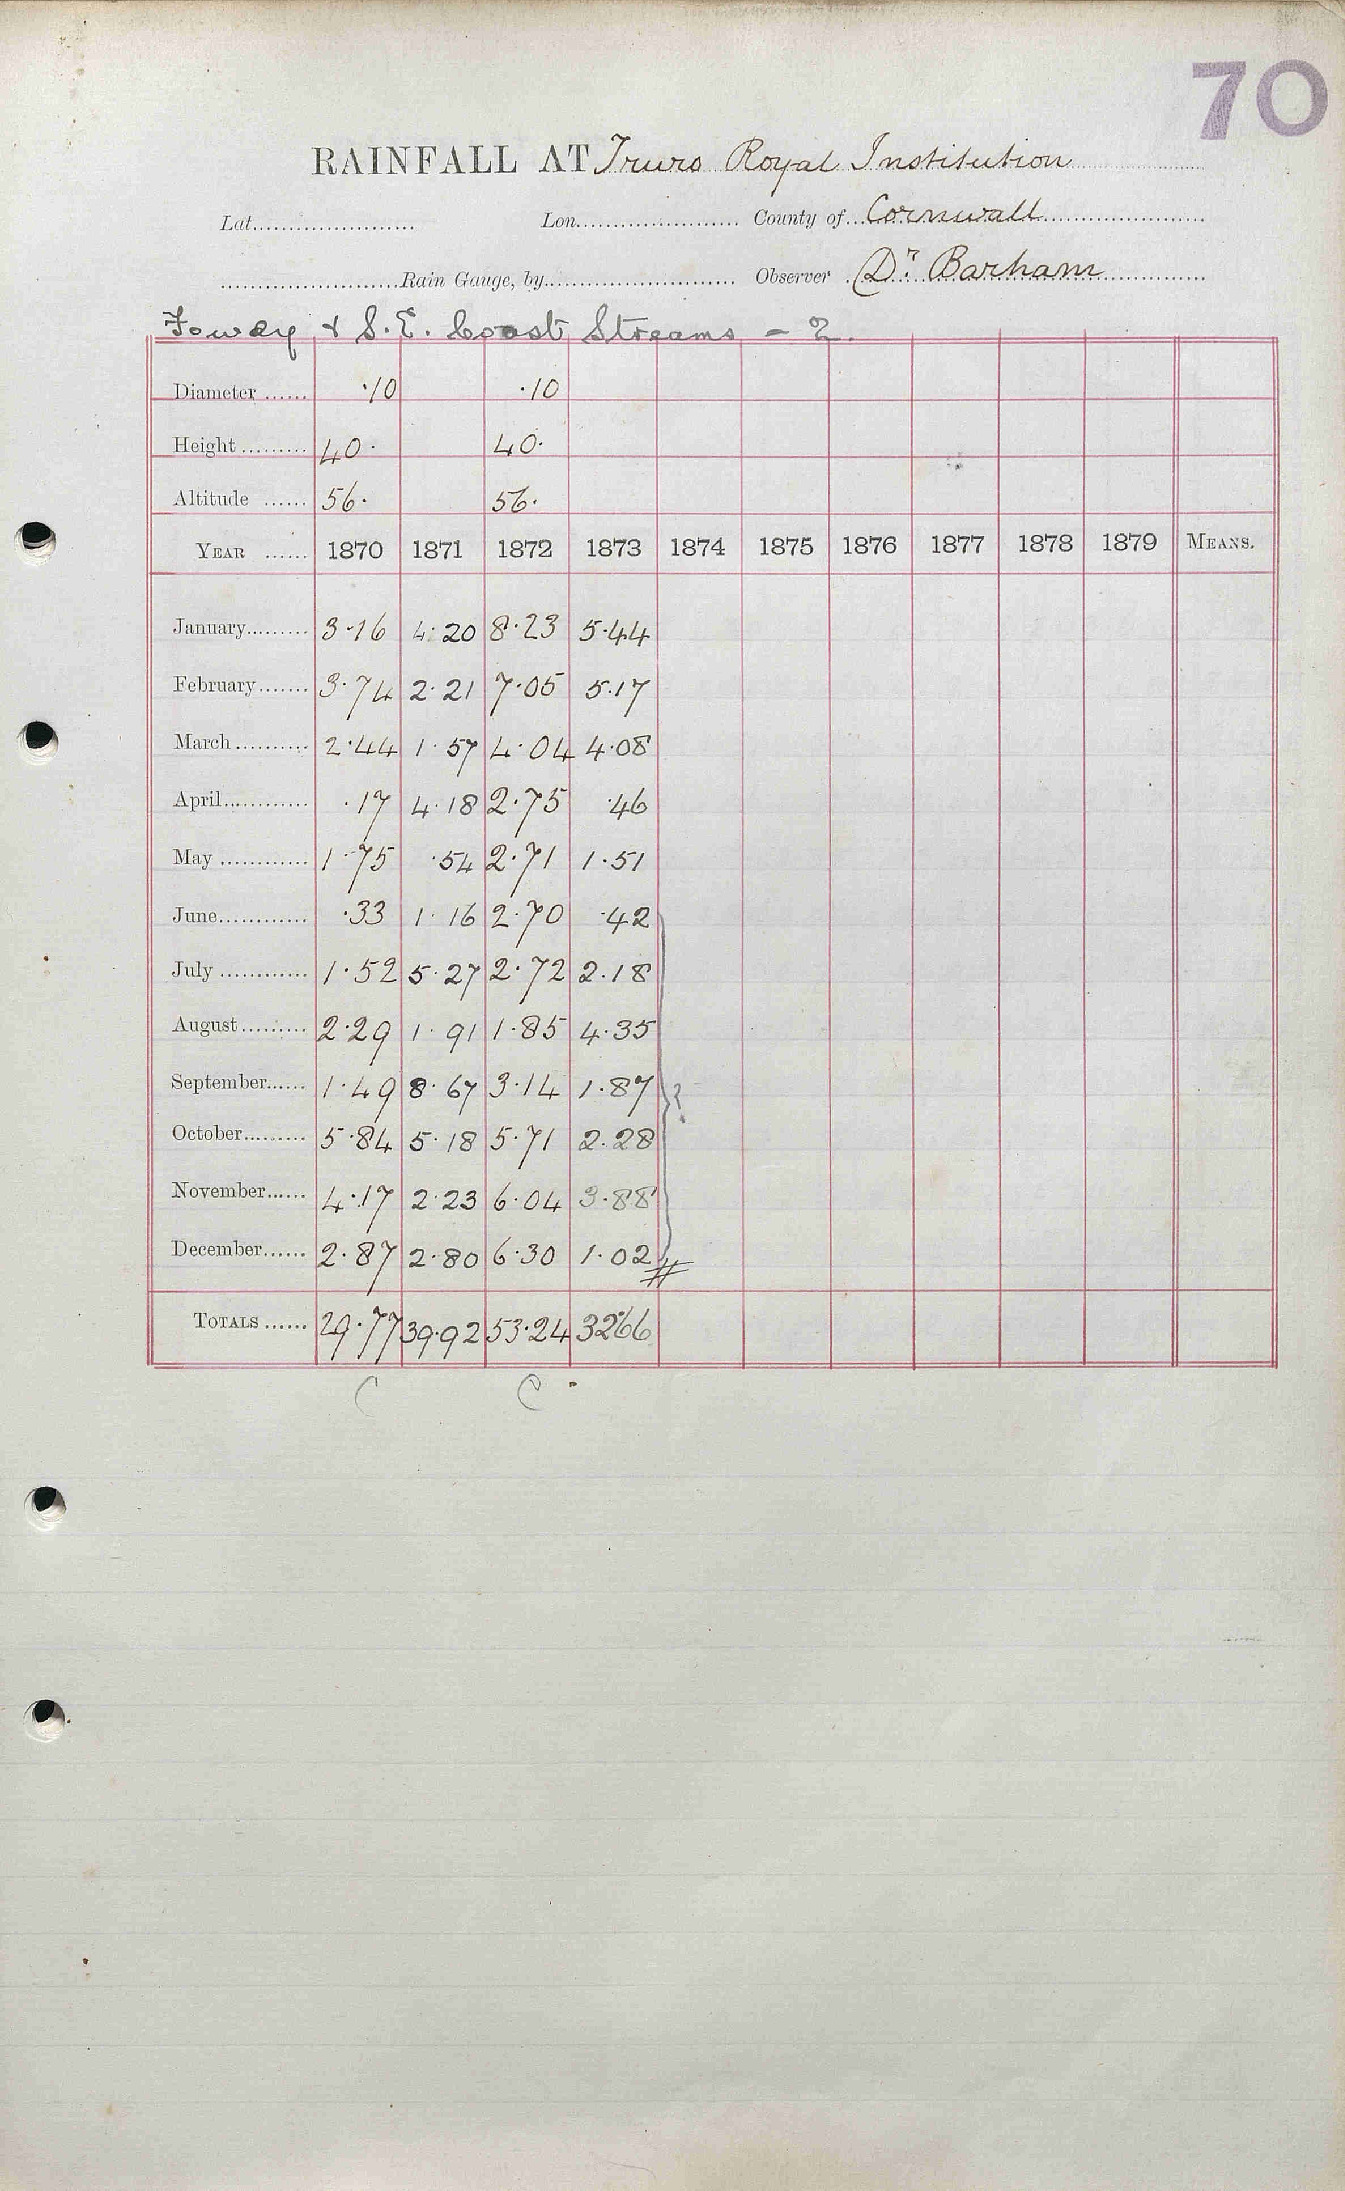 70
RAINFALL AT Truro Royal Institution
Lat. Lon. County of Cornwall
Rain Gauge, by Observer Dr. Barham
Fowey & S.E. Coast Streams - 2.
Diameter ...... ·10 ·10
Height ......... 40· 40·
Altitude ...... 56· 56·
YEAR ...... 1870 1871 1872 1873 1874 1875 1876 1877 1878 1879 MEANS.
January......... 3·16 4·20 8·23 5·44
February....... 3·74 2·21 7·05 5·17
March.......... 2·44 1·57 4·04 4·08
April............ ·17 4·18 2·75 ·46
May ............ 1·75 ·54 2·71 1·51
June............ ·33 1·16 2·70 ·42
July ............ 1·52 5·27 2·72 2·18
August......... 2·29 1·91 1·85 4·35
September...... 1·49 8·67 3·14 1·87 ?
October......... 5·84 5·18 5·71 2·28
November...... 4·17 2·23 6·04 3·88
December...... 2·87 2·80 6·30 1·02
TOTALS ...... 29·77 39·92 53·24 32·66
C C